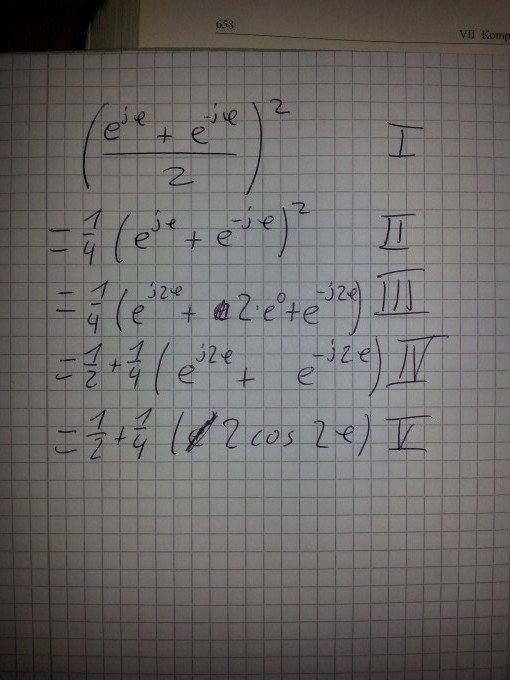 658
VII Komp
( (e^{jφ} + e^{-jφ}) / 2 )^2 I
= 1/4 ( e^{jφ} + e^{-jφ} )^2 II
= 1/4 ( e^{j2φ} + 2·e^0 + e^{-j2φ} ) III
= 1/2 + 1/4 ( e^{j2φ} + e^{-j2φ} ) IV
= 1/2 + 1/4 ( 2 cos 2φ ) V